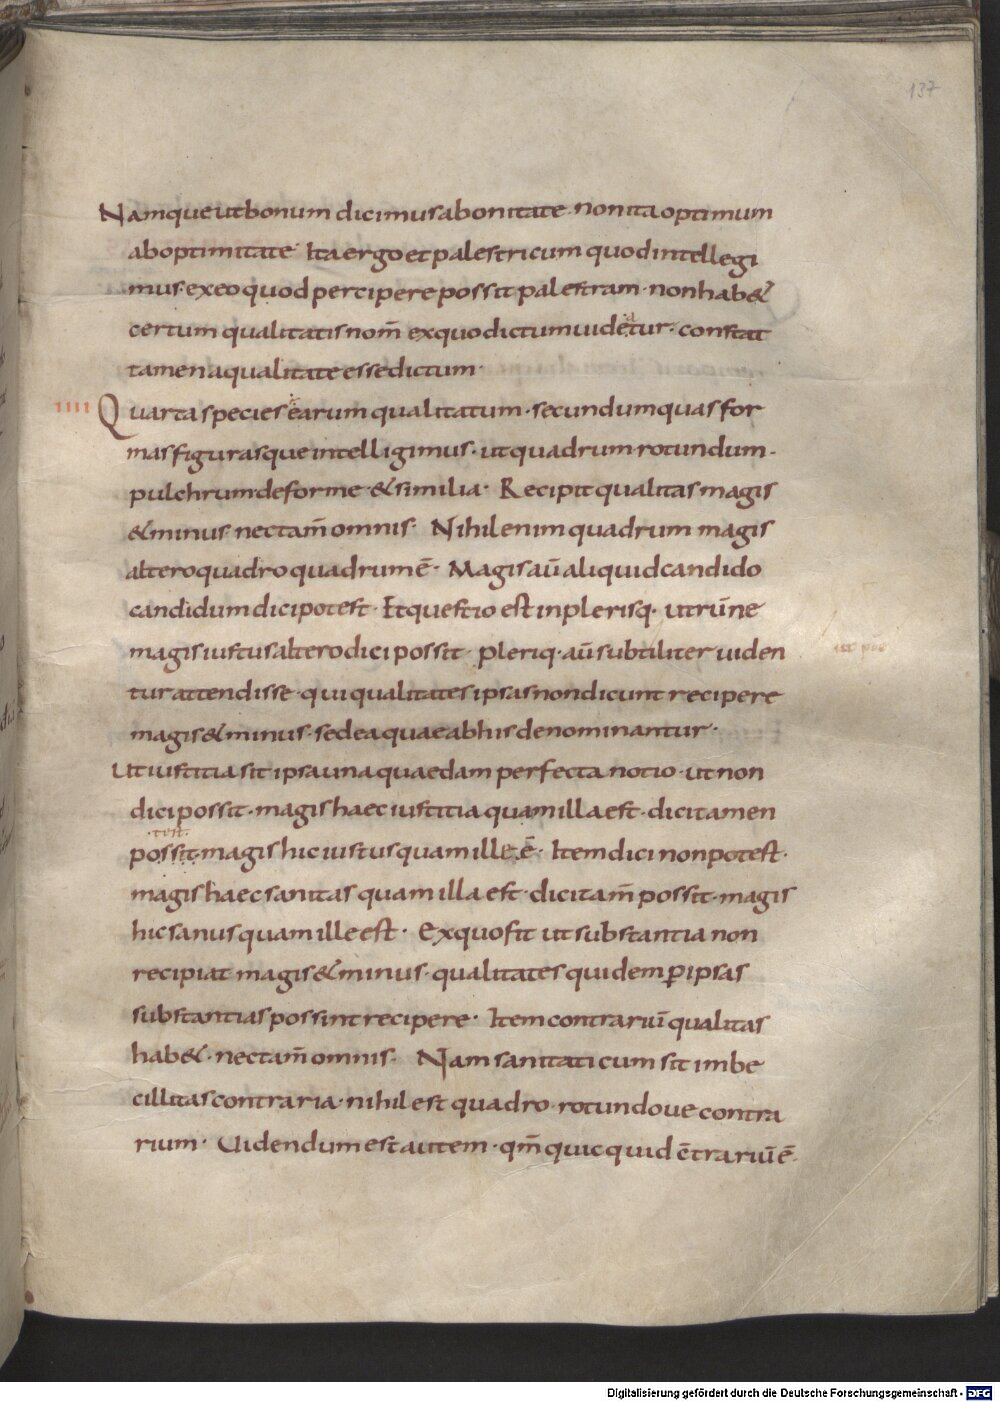 137
Namque ut bonum dicimus a bonitate · non ita optimum
ab optimitate · Ita ergo et palestricum quod intellegi
mus · ex eo quod percipere possit palestram · non hab&
certum qualitatis nom̄ ex quo dictum uideatur · constat
tamen a qualitate esse dictum ·
IIII Quarta species earum qualitatum · secundum quas for
mas figurasque intelligimus · ut quadrum · rotundum ·
pulchrum · deforme · & similia · Recipit qualitas magis
& minus · nec tam̄ omnis · Nihil enim quadrum magis
altero quadro quadrum ē · Magis aū aliquid candido
candidum dici potest · Et questio est in plerisq · utrū ne
magis iustus altero dici possit · pleriq · aū subtiliter uiden
tur attendisse · qui qualitates ipsas non dicunt recipere
magis & minus · sed ea quae ab his denominantur ·
Ut iustitia sit ipsa una quaedam perfecta notio · ut non
dici possit · magis haec iustitia quam illa est · dici tamen
· test ·
possit · magis hic iustus quam ille ē · Item dici non potest ·
magis haec sanitas quam illa est · dici tam̄ possit · magis
hic sanus quam ille est · Ex quo fit ut substantia non
recipiat magis & minus · qualitates quidem ꝑ ipsas
substantias possint recipere · Item contrariū qualitas
hab& · nec tam̄ omnis · Nam sanitati cum sit imbe
cillitas contraria · nihil est quadro · rotundo ue contra
rium · Uidendum est autem · qm̄ quicquid c̄trariū ē ·
Digitalisierung gefördert durch die Deutsche Forschungsgemeinschaft · DFG